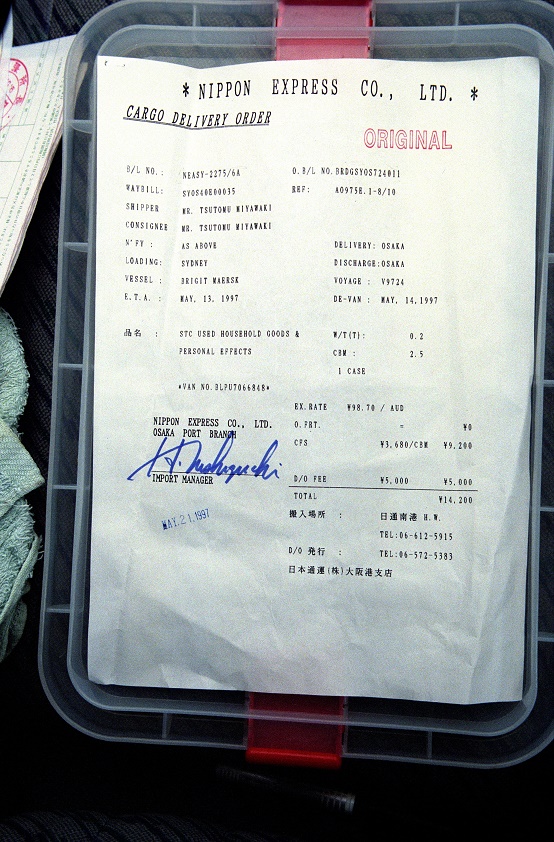 * NIPPON EXPRESS CO., LTD. *
CARGO DELIVERY ORDER
ORIGINAL
B/L NO.: NEASY-2275/6A O.B/L NO.BRDGSYOS724011
WAYBILL: SYOS40E00035 REF: A0975E.1-8/10
SHIPPER MR. TSUTOMU MIYAWAKI
CONSIGNEE MR. TSUTOMU MIYAWAKI
N'FY : AS ABOVE DELIVERY: OSAKA
LOADING: SYDNEY DISCHARGE:OSAKA
VESSEL : BRIGIT MAERSK VOYAGE : V9724
E.T.A. : MAY, 13, 1997 DE-VAN : MAY, 14,1997
品名 : STC USED HOUSEHOLD GOODS & W/T(T): 0.2
PERSONAL EFFECTS CBM : 2.5
1 CASE
*VAN NO.BLPU7066848*
EX.RATE ¥98.70 / AUD
NIPPON EXPRESS CO., LTD. O.FRT. = ¥0
OSAKA PORT BRANCH
CFS ¥3,680/CBM ¥9,200
IMPORT MANAGER
D/O FEE ¥5,000 ¥5,000
TOTAL ¥14,200
MAY.21.1997
搬入場所 : 日通南港 H.W.
TEL:06-612-5915
D/O 発行 : TEL:06-572-5383
日本通運(株)大阪港支店